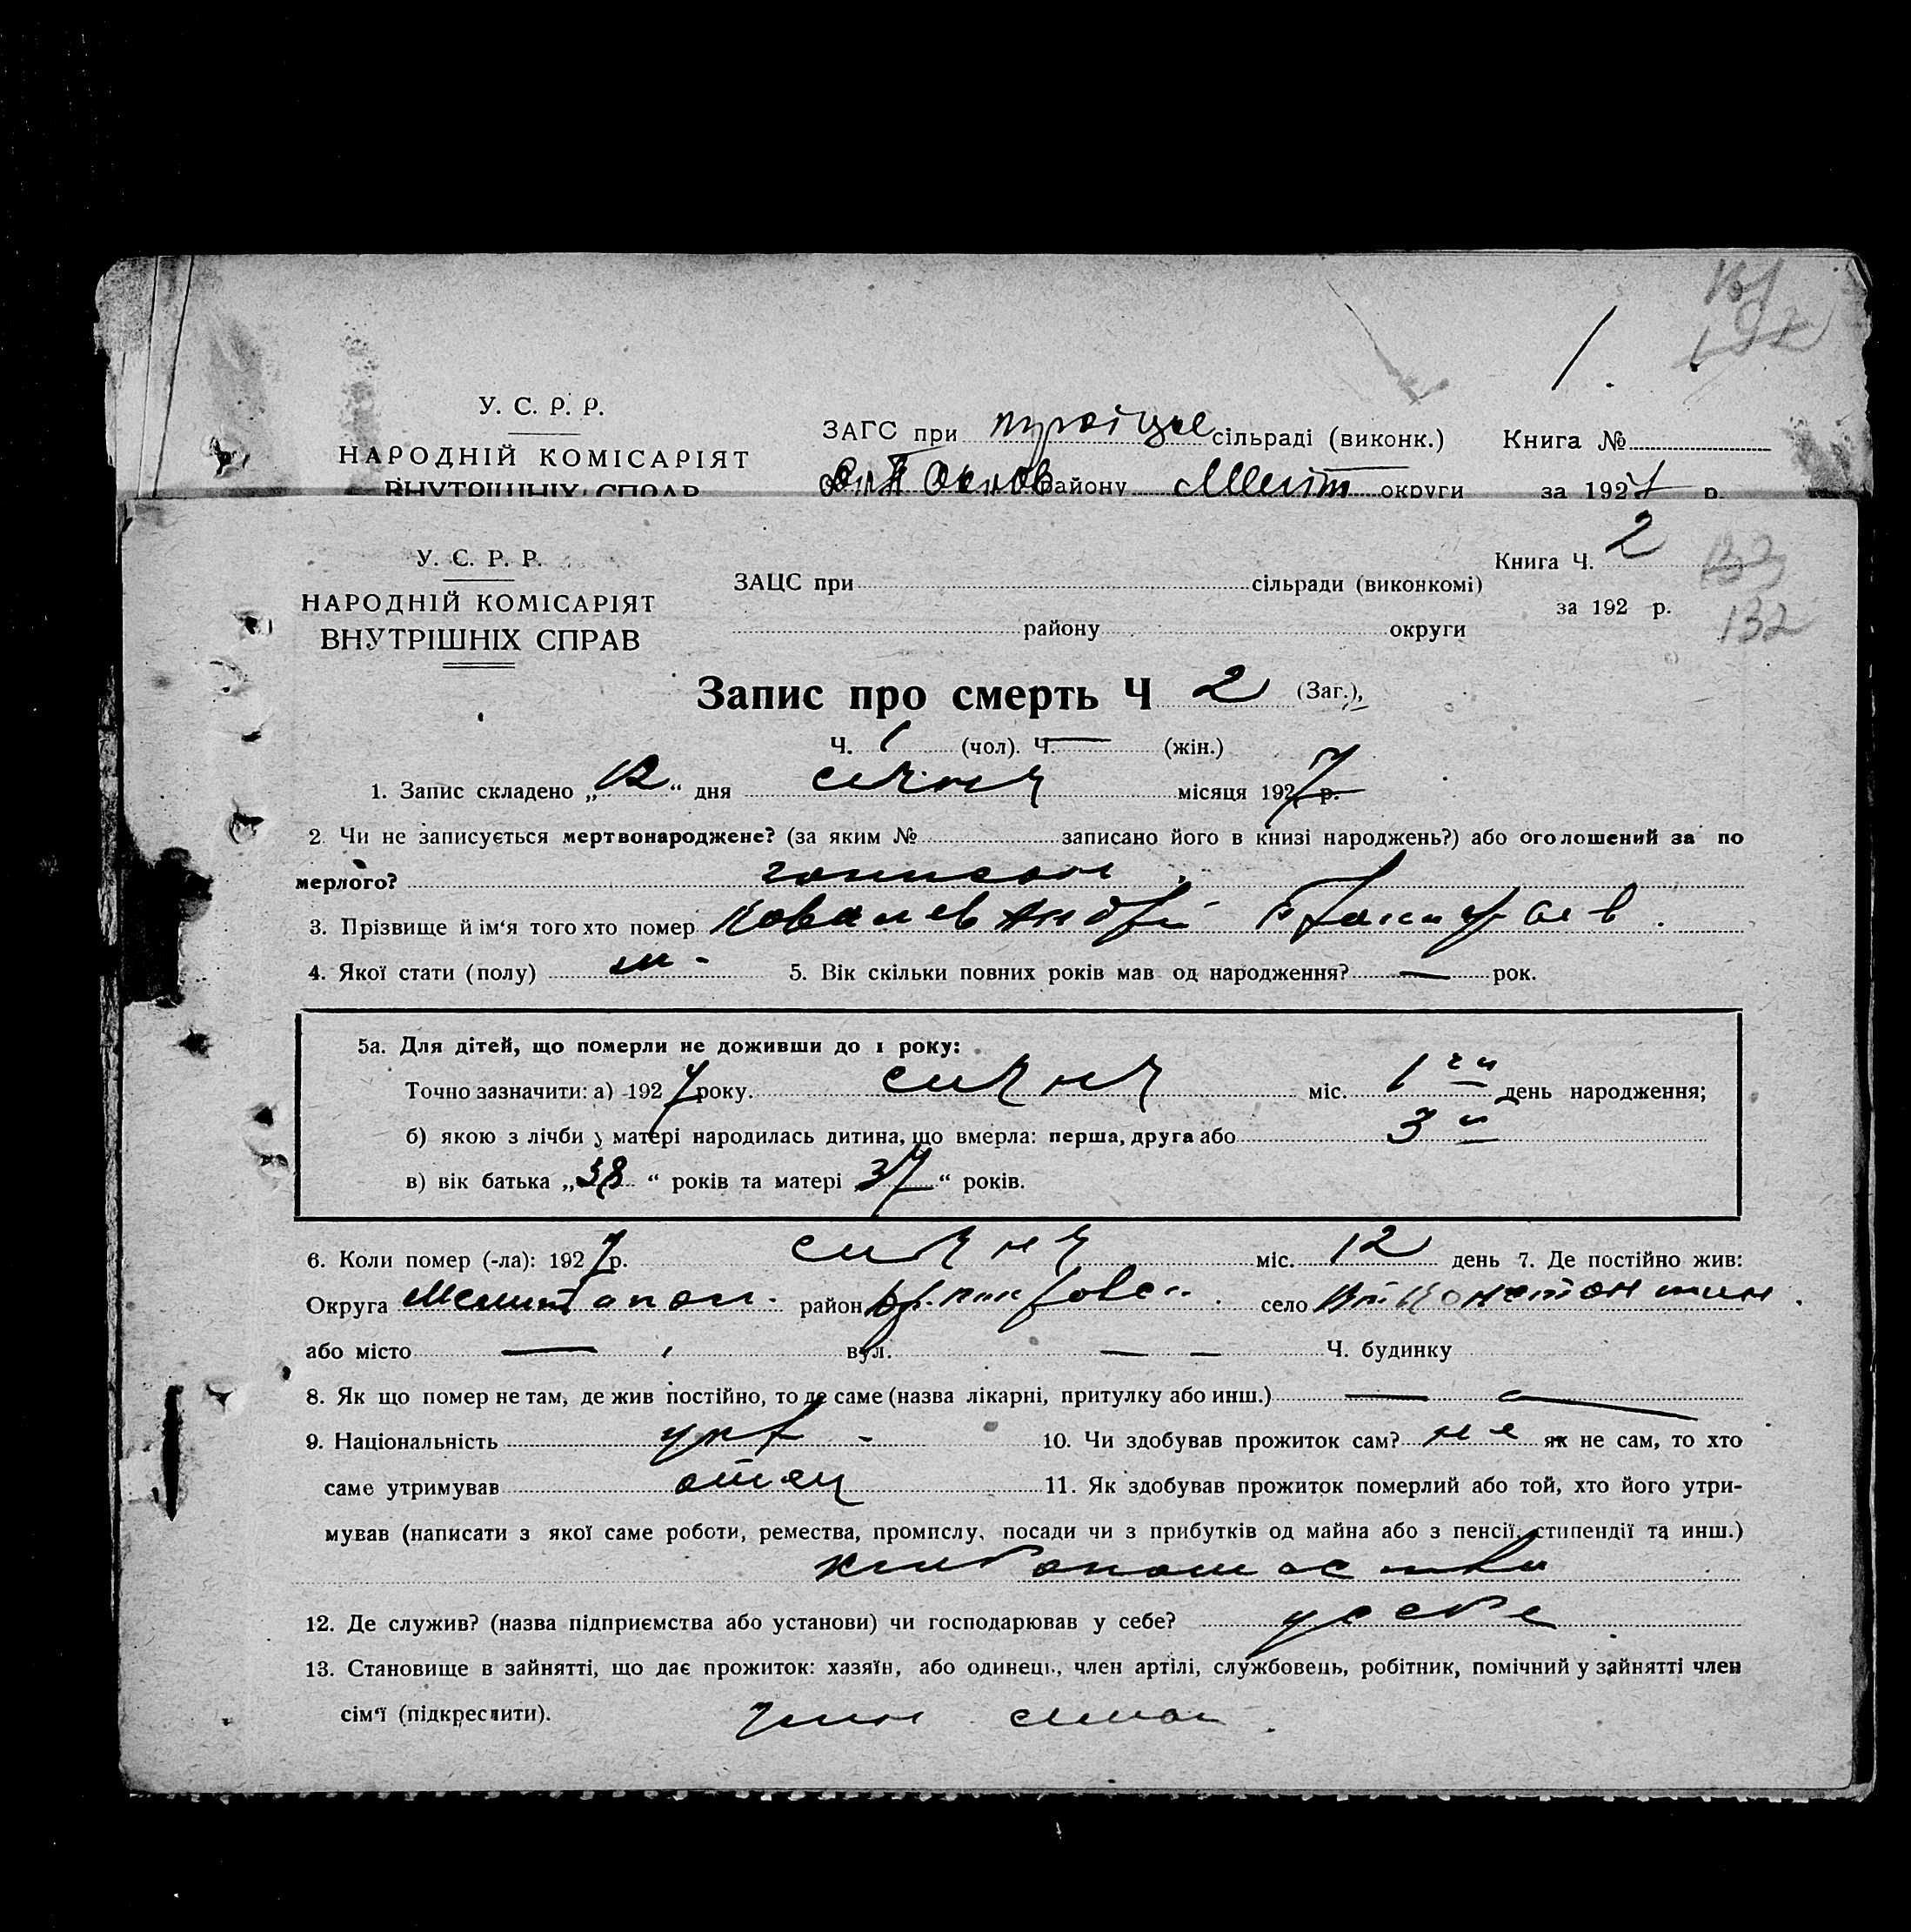 1.
У. С. Р. Р.
НАРОДНІЙ КОМІСАРІЯТ
ВНУТРІШНІХ СПРАВ
ЗАГС при троіцке сільраді (виконк.) Книга №
району Меліт округи за 1927 р.
У. С. Р. Р.
НАРОДНІЙ КОМІСАРІЯТ
ВНУТРІШНІХ СПРАВ
ЗАЦС при сільради (виконкомі)
району округи
Книга Ч. 2
за 192 р.
132
Запис про смерть Ч 2 (Заг.),
Ч. 1 (чол). Ч. — (жін.)
1. Запис складено „12“ дня січня місяця 1927 р.
2. Чи не записується мертвонароджене? (за яким № записано його в книзі народжень?) або оголошений за по
мерлого?
3. Прізвище й ім'я того хто помер Ковалев Андрій
4. Якої стати (полу) м - 5. Вік скільки повних років мав од народження? — рок.
5а. Для дітей, що померли не доживши до 1 року:
Точно зазначити: а) 1927 року. січня міс. 1 день народження;
б) якою з лічби у матері народилась дитина, що вмерла: перша, друга або 3
в) вік батька „38“ років та матері „37“ років.
6. Коли помер (-ла): 1927 р. січня міс. 12 день 7. Де постійно жив:
Округа Мелитопол. район село
або місто — вул. — — Ч. будинку
8. Як що помер не там, де жив постійно, то де саме (назва лікарні, притулку або инш.) —
9. Національність укр - 10. Чи здобував прожиток сам? не як не сам, то хто
саме утримував отец 11. Як здобував прожиток померлий або той, хто його утри-
мував (написати з якої саме роботи, ремества, промислу, посади чи з прибутків од майна або з пенсії, стипендії та инш.)
12. Де служив? (назва підприємства або установи) чи господарював у себе? у себе
13. Становище в зайнятті, що дає прожиток: хазяїн, або одинець, член артілі, службовець, робітник, помічний у зайнятті член
сім'ї (підкреслити). член